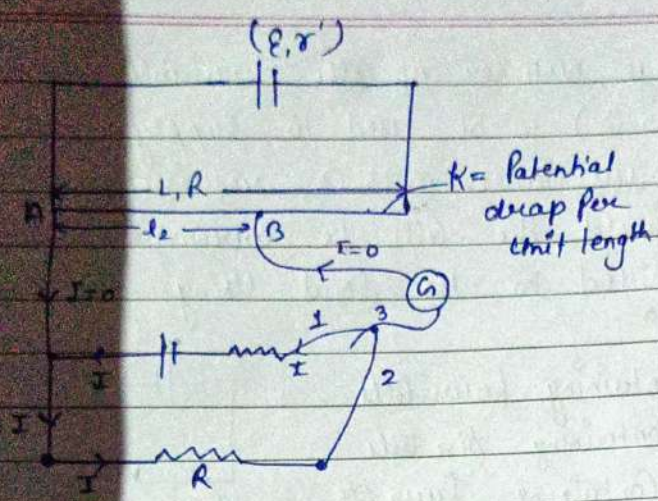 (ε, r')
L, R
K = Patential
drap Per
unit length
A
l₂
B
I=0
I=0
G
1
3
I
r
2
I
I
R